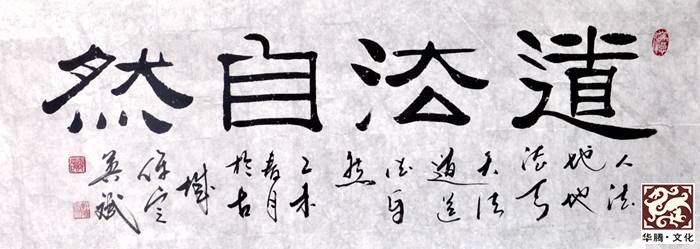 道法自然
人法
地地
法天
天法
道道
法自
然
乙未
春月
於古
城
保定
英斌
华腾·文化